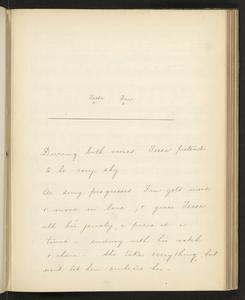 Tessa Sam
During both verses Tessa pretends
to be very shy
As song progresses Sam gets more
& more in love, & gives Tessa
all his jewelry, a piece at a
time - ending with his watch
& chain. She takes everything, but
wont let him embrace her.